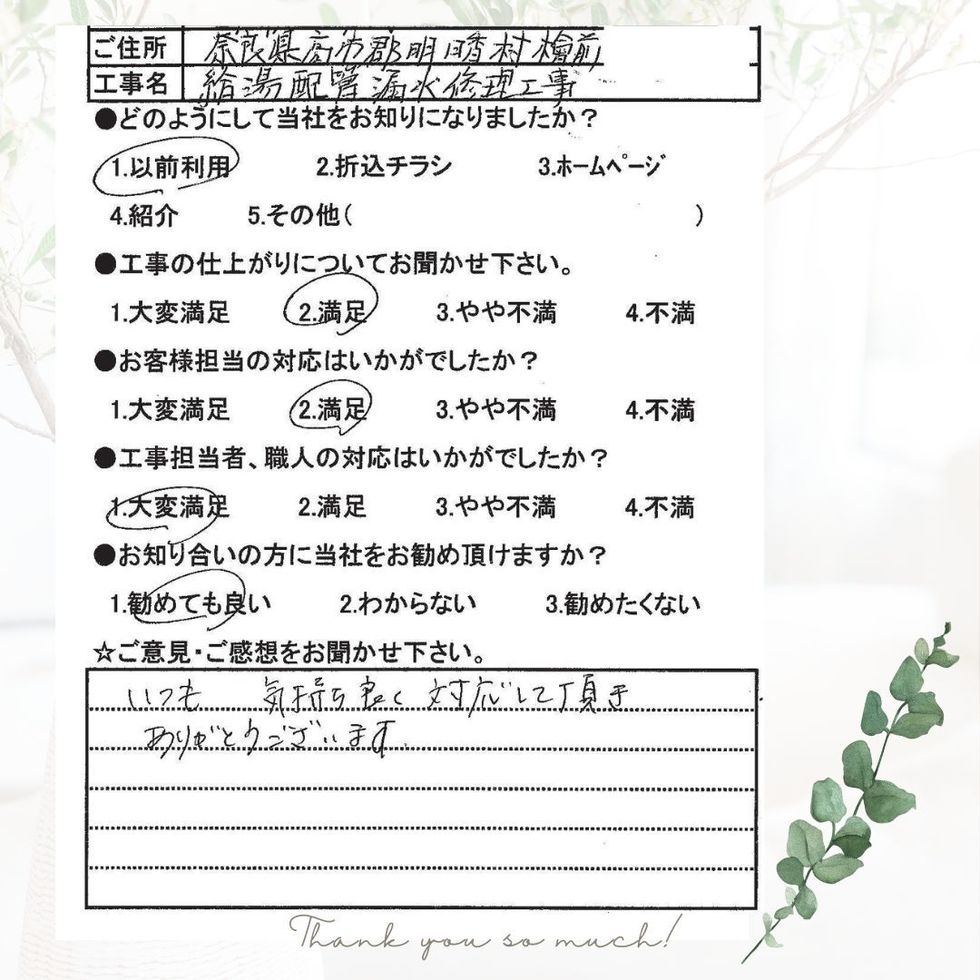 ご住所 奈良県高市郡明日香村檜前
工事名 給湯配管漏水修理工事
●どのようにして当社をお知りになりましたか？
1.以前利用 2.折込チラシ 3.ホームページ
4.紹介 5.その他( )
●工事の仕上がりについてお聞かせ下さい。
1.大変満足 2.満足 3.やや不満 4.不満
●お客様担当の対応はいかがでしたか？
1.大変満足 2.満足 3.やや不満 4.不満
●工事担当者、職人の対応はいかがでしたか？
1.大変満足 2.満足 3.やや不満 4.不満
●お知り合いの方に当社をお勧め頂けますか？
1.勧めても良い 2.わからない 3.勧めたくない
☆ご意見・ご感想をお聞かせ下さい。
いつも 気持ち良く 対応して頂き
ありがとうございます。
Thank you so much!